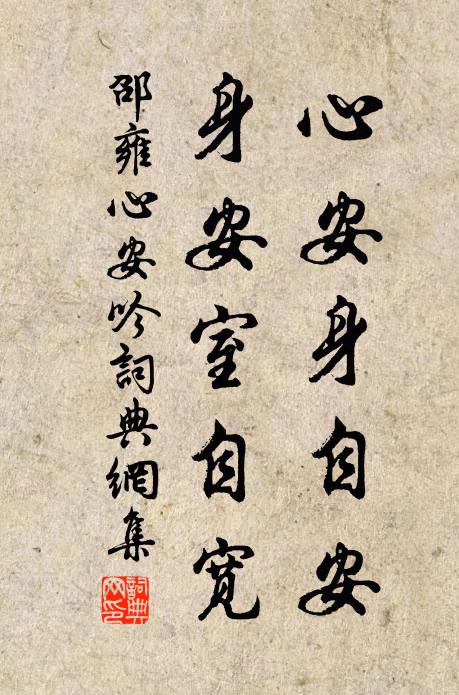 心安身自安
身安室自寬
邵雍心安吟詞典網集
詞典網印